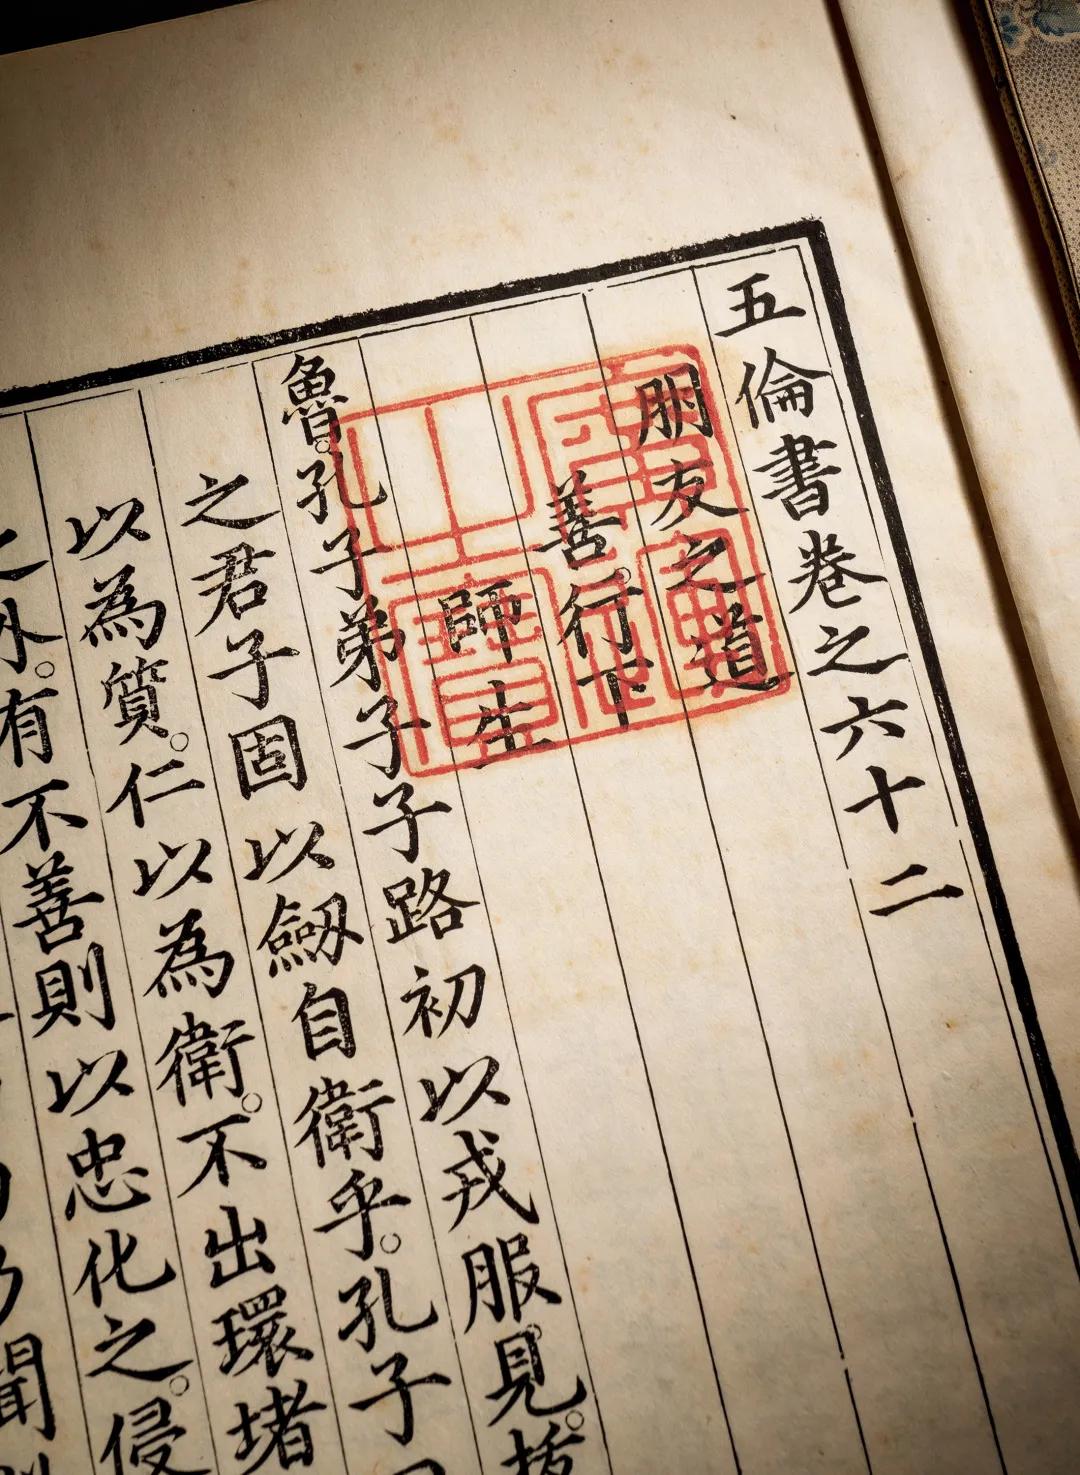 五倫書卷之六十二
朋友之道
善。行下
師生
魯。孔子弟子子路初以戎服見。拔
之君子固以劒自衛乎。孔子
以為質。仁以為衛。不出環堵
之外。有不善則以忠化之。侵
聞
廣運之寶